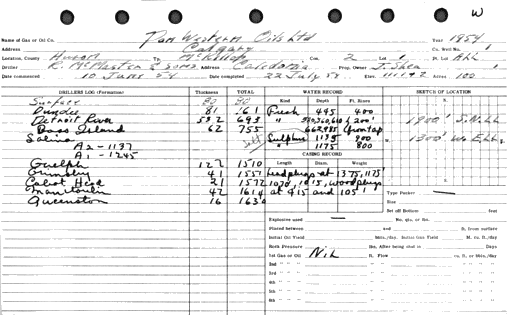 W
Name of Gas or Oil Co. Pan Western Oils Ltd Year 1954
Address Calgary Co. Well No. 1
Location, County Huron Tp. McKillop Con. 2 Lot 1 Pt. Lot ALL
Driller K. McMaster & Sons Address Caledonia Prop. Owner J. Shea Elev. 1114.42 Acres 100
Date commenced 10 June 54 Date completed 22 July 54
DRILLERS LOG (Formation) Thickness TOTAL WATER RECORD SKETCH OF LOCATION
Surface 80 80 Kind Depth Ft. Risen
Dundee 81 161 Fresh 445 400
Detroit River 532 693 " 200' 1900' S.N.LL
Bass Island 62 755 662,985 from top
Salina Salt Sulphur 1135 900 1300' W. E.LL
A2 - 1137 1175 800
A1 - 1245 CASING RECORD
Guelph 122 1510 Length Diam. Weight
Grimsby 41 1551 Lead plugs at 1375, 1175'
Cabot Head 21 1572 1070, 1015, wood plugs
Manitoulin 42 1614 at 415 and 105' Type Packer —
Queenston 16 1630 Size
Set off Bottom feet
Explosive used — No. qts. or lbs.
Placed between and ft. from surface
Initial Oil Field Min./day. Initial Gas Field M. cu. ft./day
Rock Pressure lbs. After being shut in Days
1st Gas or Oil Nil ft. Flow cu. ft. or bbls./day
2nd " " "
3rd " " "
4th " " "
5th " " "
6th " " "